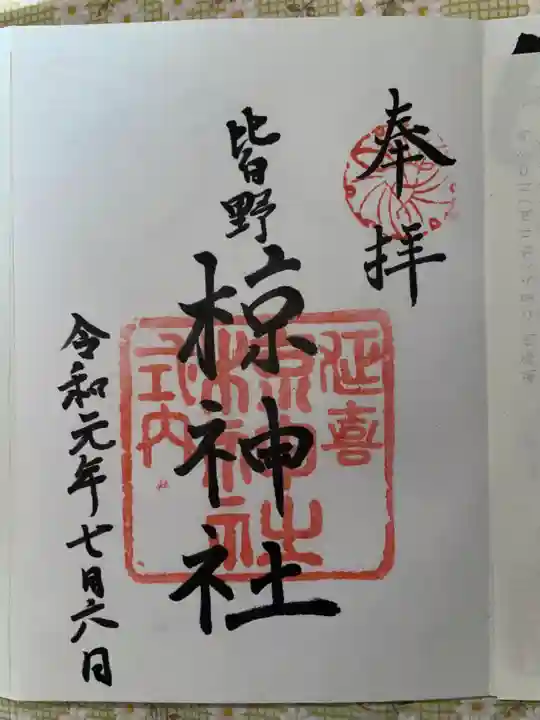 奉拝
皆野
椋神社
延喜
椋神社
式内
社
令和元年七月六日